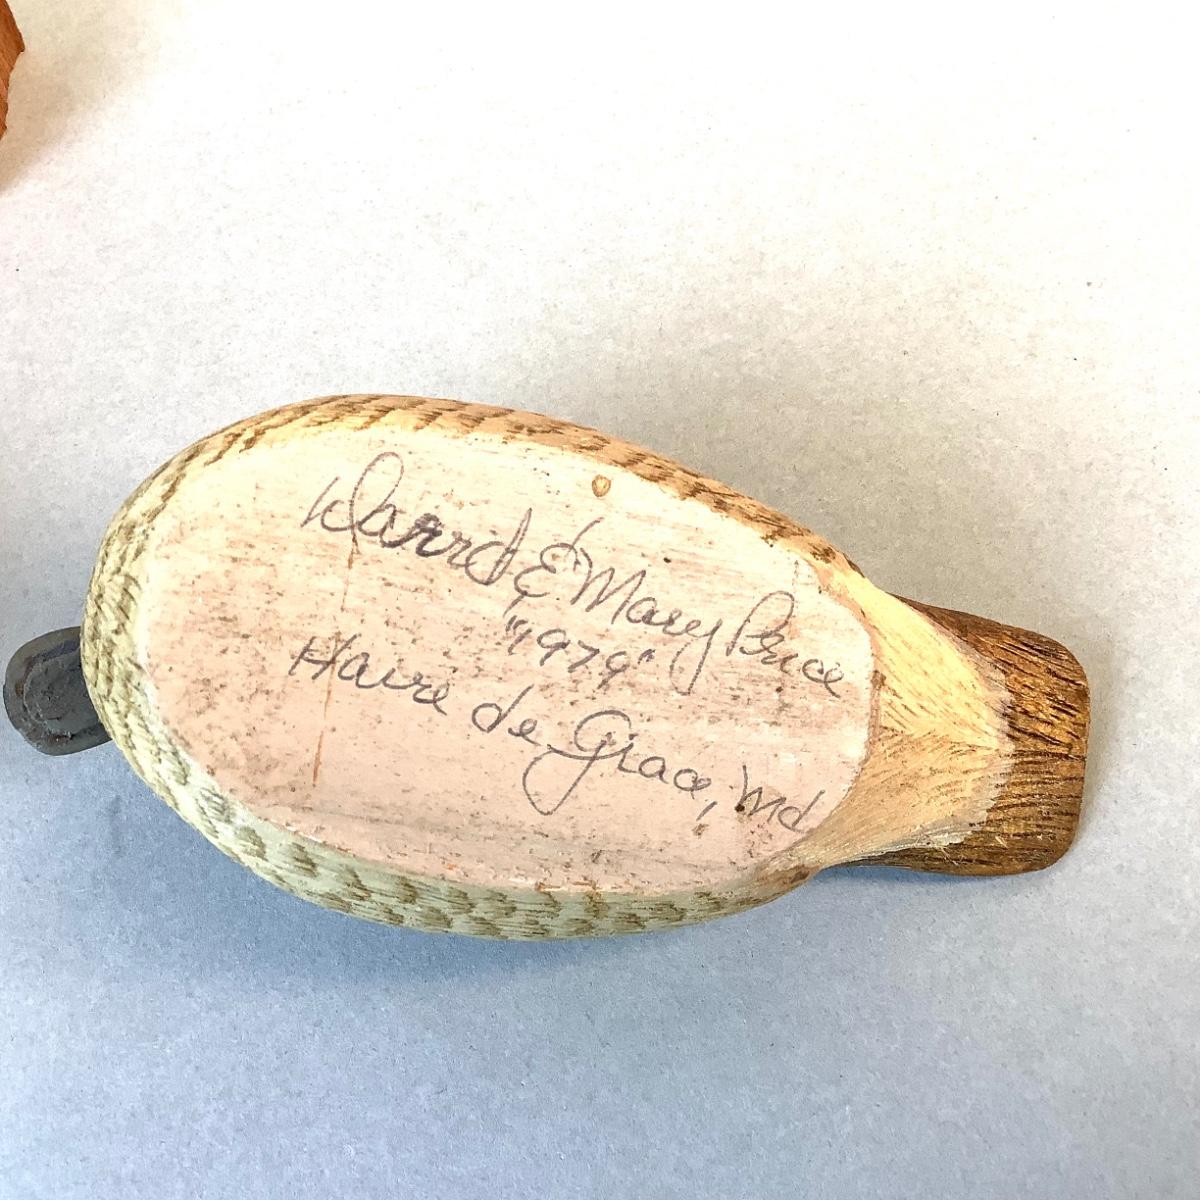 Darrid & Mary Price
"1979"
Havre de Grace, Md